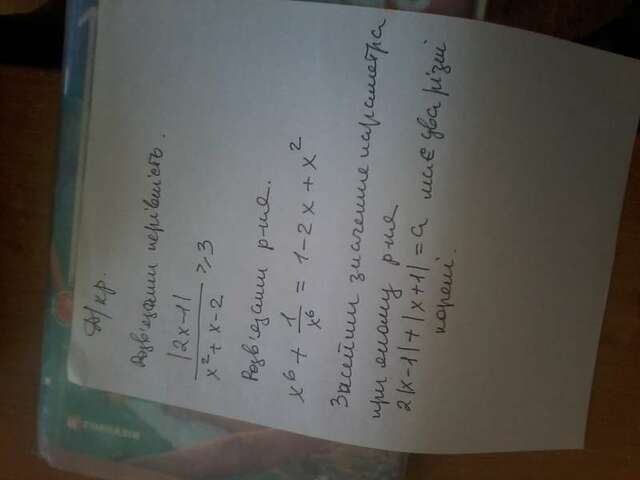 Д/кр.
Розв'язати нерівність.
|2x-1| / x²+x-2 ≥ 3
Розв'язати р-ня.
x⁶ + 1/x⁶ = 1-2x+x²
значення параметра
при якому р-ня
2|x-1|+|x+1|=a має два різні
корені.